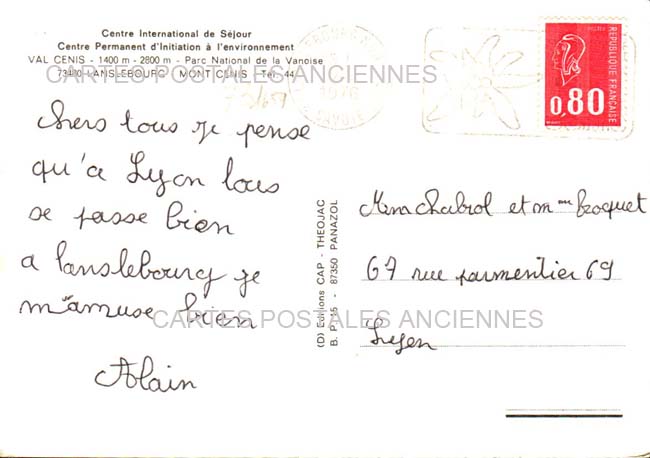 Centre International de Séjour
Centre Permanent d'Initiation à l'environnement
VAL CENIS - 1400 m - 2800 m - Parc National de la Vanoise
73480 LANSLEBOURG MONT CENIS Tél. 44
CARTES POSTALES ANCIENNES
1976
SAVOIE
REPUBLIQUE FRANÇAISE
0,80
chers tous je pense
qu'a Lyon tous
se passe bien
a lanslebourg je
m'amuse bien
Alain
(D) Editions CAP - THEOJAC
B. P. 55 - 87350 PANAZOL
Mme chabrol et mme Broquet
67 rue parmentier 69
Lyon
CARTES POSTALES ANCIENNES